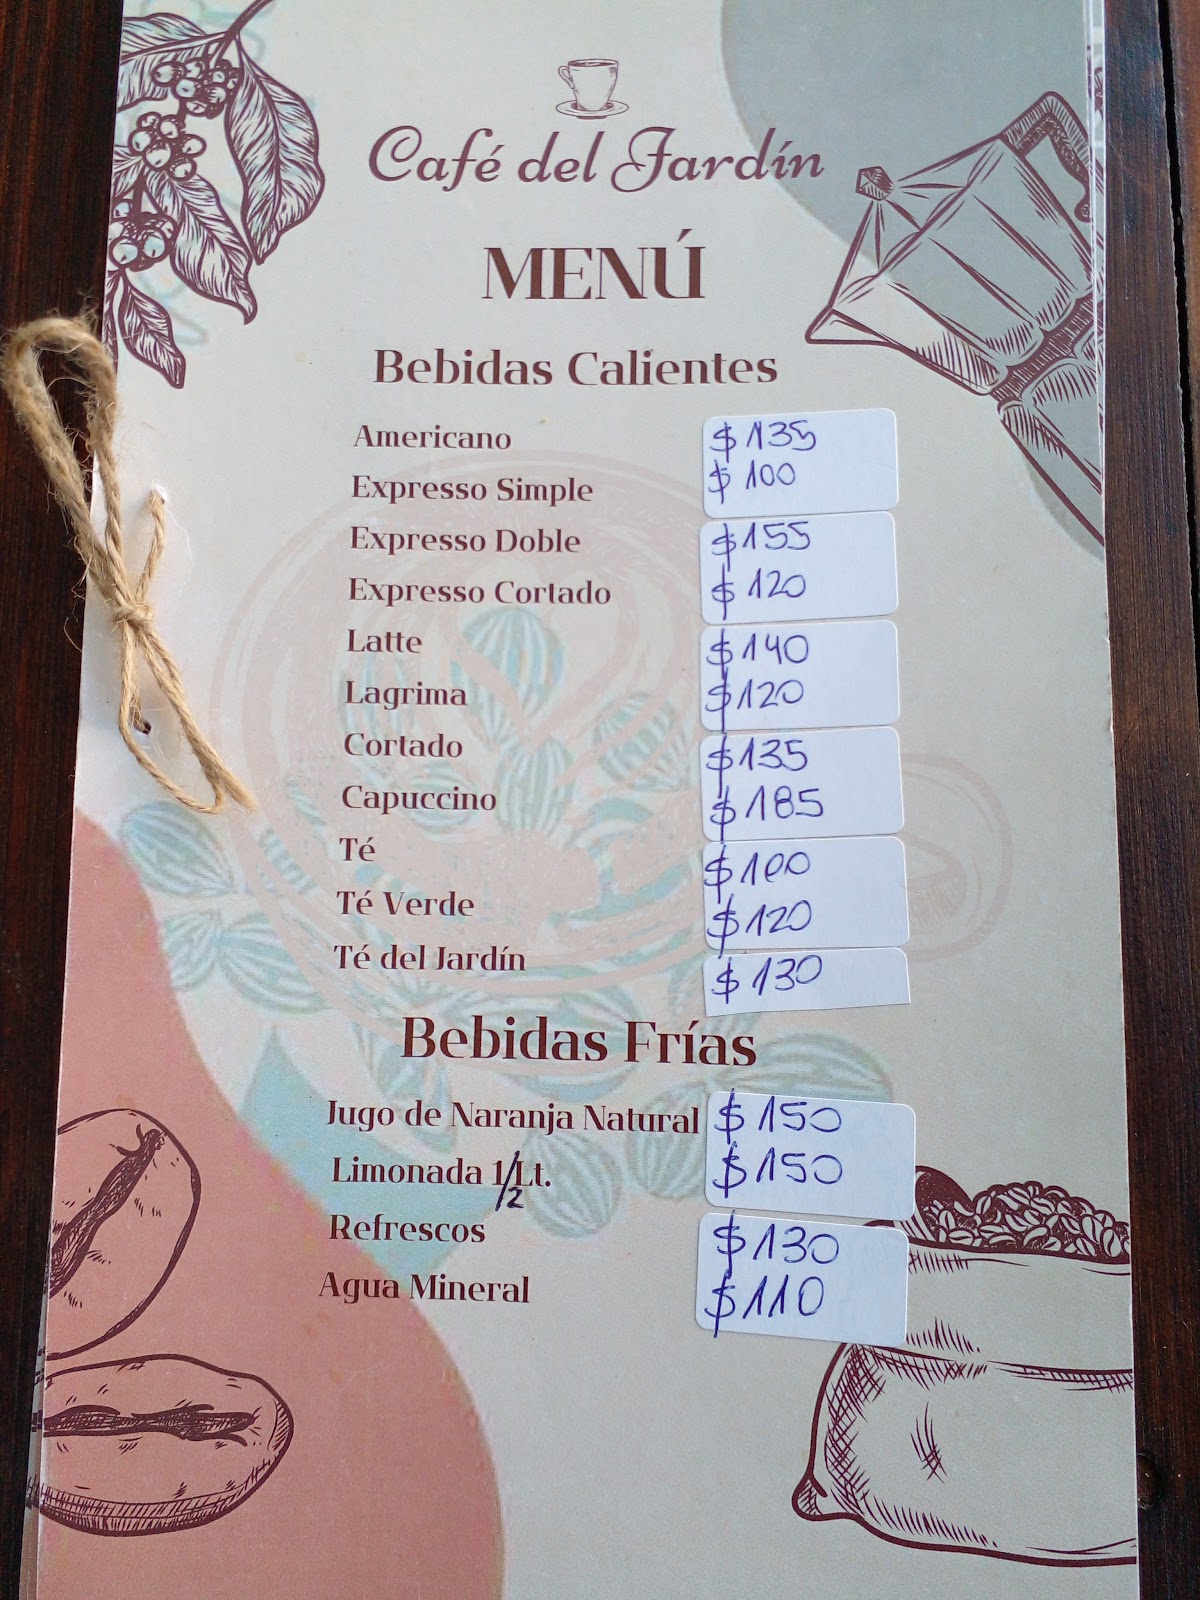 Café del Jardín
MENÚ
Bebidas Calientes
Americano $ 135
Expresso Simple $ 100
Expresso Doble $ 155
Expresso Cortado $ 120
Latte $ 140
Lagrima $ 120
Cortado $ 135
Capuccino $ 185
Té $ 100
Té Verde $ 120
Té del Jardín $ 130
Bebidas Frías
Jugo de Naranja Natural $ 150
Limonada 1/2 Lt. $ 150
Refrescos $ 130
Agua Mineral $ 110